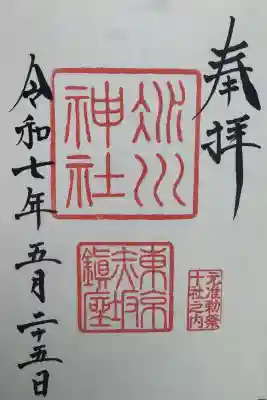 奉拝
氷川
神社
元准勅祭
十社之内
東京
赤坂
鎮座
令和七年五月二十五日